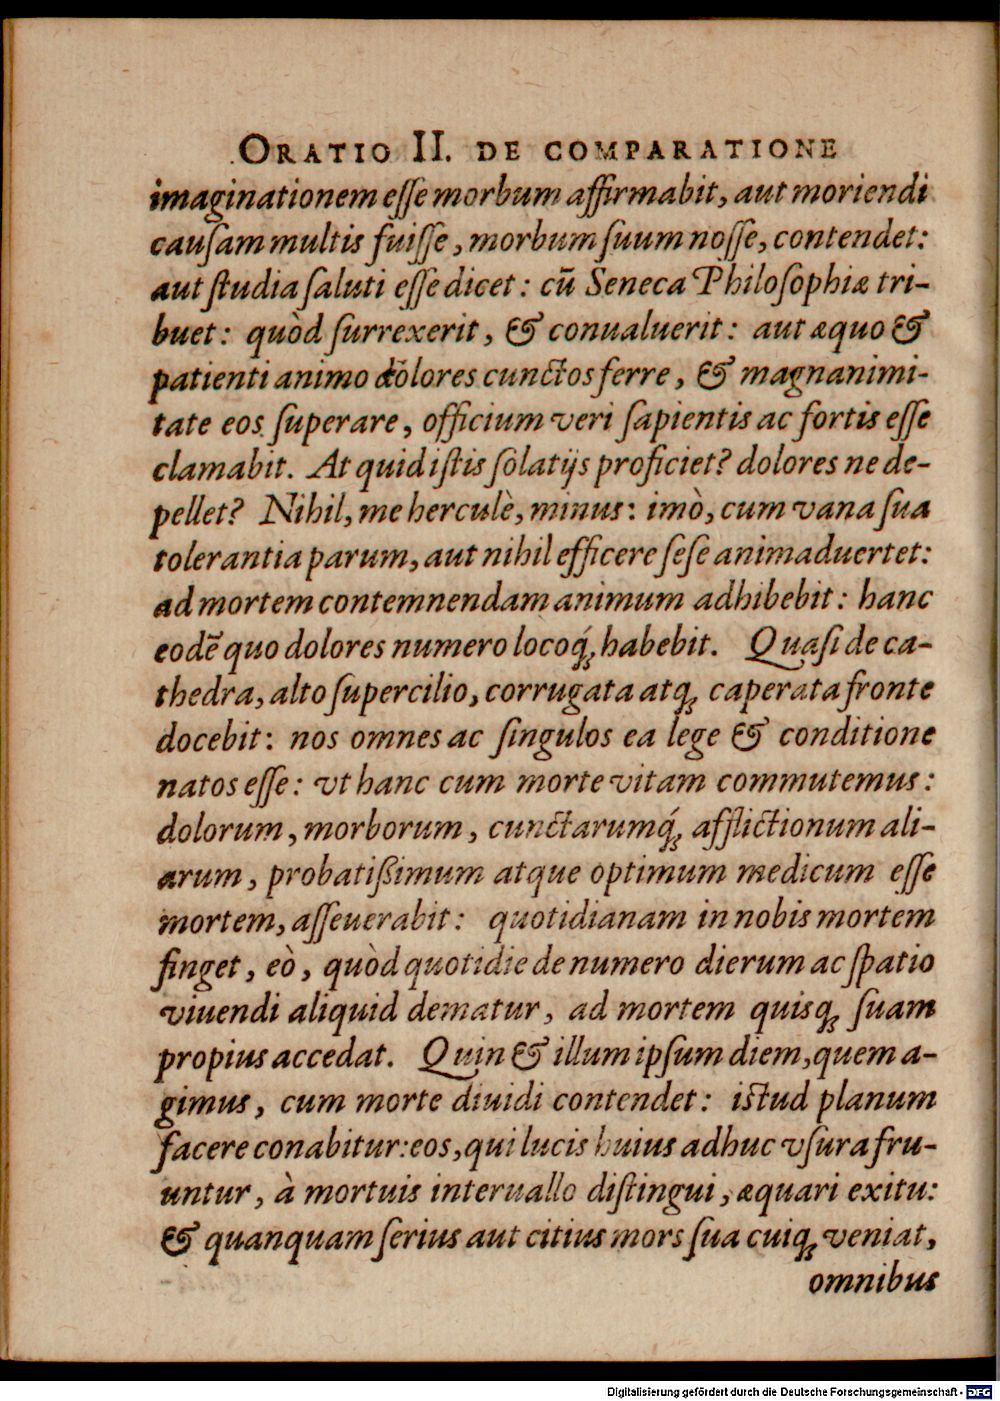 ORATIO II. DE COMPARATIONE
imaginationem eſſe morbum affirmabit, aut moriendi
cauſam multis fuiſſe, morbum ſuum noſſe, contendet:
aut ſtudia ſaluti eſſe dicet: cū Seneca Philoſophiæ tri-
buet: quòd ſurrexerit, & conualuerit: aut æquo &
patienti animo dolores cunctos ferre, & magnanimi-
tate eos ſuperare, officium veri ſapientis ac fortis eſſe
clamabit. At quid iſtis ſolatijs proficiet? dolores ne de-
pellet? Nihil, me herculè, minus: imò, cum vana ſua
tolerantia parum, aut nihil efficere ſeſe animaduertet:
ad mortem contemnendam animum adhibebit: hanc
eodē quo dolores numero locoq́; habebit. Quaſi de ca-
thedra, alto ſupercilio, corrugata atq; caperata fronte
docebit: nos omnes ac ſingulos ea lege & conditione
natos eſſe: vt hanc cum morte vitam commutemus:
dolorum, morborum, cunctarumq́; afflictionum ali-
arum, probatißimum atque optimum medicum eſſe
mortem, aſſeuerabit: quotidianam in nobis mortem
finget, eò, quòd quotidie de numero dierum ac ſpatio
viuendi aliquid dematur, ad mortem quisq; ſuam
propius accedat. Quin & illum ipſum diem, quem a-
gimus, cum morte diuidi contendet: iſtud planum
facere conabitur: eos, qui lucis huius adhuc vſura fru-
untur, à mortuis interuallo diſtingui, æquari exitu:
& quanquam ſerius aut citius mors ſua cuiq; veniat,
omnibus
Digitalisierung gefördert durch die Deutsche Forschungsgemeinschaft - DFG